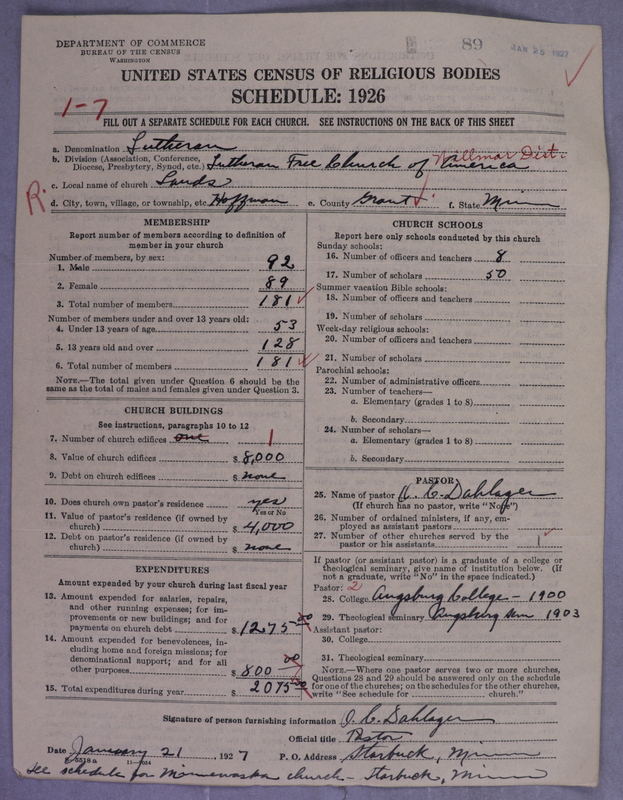 DEPARTMENT OF COMMERCE
BUREAU OF THE CENSUS
WASHINGTON
89
JAN 25 1927
UNITED STATES CENSUS OF RELIGIOUS BODIES
SCHEDULE: 1926
1-7
FILL OUT A SEPARATE SCHEDULE FOR EACH CHURCH. SEE INSTRUCTIONS ON THE BACK OF THIS SHEET
a. Denomination Lutheran
b. Division (Association, Conference, Diocese, Presbytery, Synod, etc.) Lutheran Free Church of America Willmar Dist.
R.
c. Local name of church Lands
d. City, town, village, or township, etc. Hoffman e. County Grant f. State Minn
MEMBERSHIP
Report number of members according to definition of
member in your church
Number of members, by sex:
1. Male 92
2. Female 89
3. Total number of members 181
Number of members under and over 13 years old:
4. Under 13 years of age 53
5. 13 years old and over 128
6. Total number of members 181
NOTE.—The total given under Question 6 should be
same as the total of males and females given under Question 3.
CHURCH BUILDINGS
See instructions, paragraphs 10 to 12
7. Number of church edifices one 1
8. Value of church edifices $ 8,000
9. Debt on church edifices $ none
10. Does church own pastor's residence yes
Yes or No
11. Value of pastor's residence (if owned by
church) $ 4,000
12. Debt on pastor's residence (if owned by
church) $ none
EXPENDITURES
Amount expended by your church during last fiscal year
13. Amount expended for salaries, repairs,
and other running expenses; for im-
provements or new buildings; and for
payments on church debt $ 1275 00
14. Amount expended for benevolences, in-
cluding home and foreign missions; for
denominational support; and for all
other purposes $ 800 00
15. Total expenditures during year $ 2075 00
CHURCH SCHOOLS
Report here only schools conducted by this church
Sunday schools:
16. Number of officers and teachers 8
17. Number of scholars 50
Summer vacation Bible schools:
18. Number of officers and teachers
19. Number of scholars
Week-day religious schools:
20. Number of officers and teachers
21. Number of scholars
Parochial schools:
22. Number of administrative officers
23. Number of teachers—
a. Elementary (grades 1 to 8)
b. Secondary
24. Number of scholars—
a. Elementary (grades 1 to 8)
b. Secondary
PASTOR
25. Name of pastor O. C. Dahlager
(If church has no pastor, write "None")
26. Number of ordained ministers, if any, em-
ployed as assistant pastors
27. Number of other churches served by the
pastor or his assistants 1
If pastor (or assistant pastor) is a graduate of a college or
theological seminary, give name of institution below. (If
not a graduate, write "No" in the space indicated.)
Pastor: 2
28. College Augsburg College - 1900
29. Theological seminary Augsburg Sem 1903
Assistant pastor:
30. College
31. Theological seminary
NOTE.—Where one pastor serves two or more churches,
Questions 28 and 29 should be answered only on the schedule
for one of the churches; on the schedules for the other churches,
write "See schedule for church."
Signature of person furnishing information O. C. Dahlager
Official title Pastor
Date January 21, 1927 P. O. Address Starbuck, Minn
11—
See schedule for Minnewaska church - Starbuck, Minn